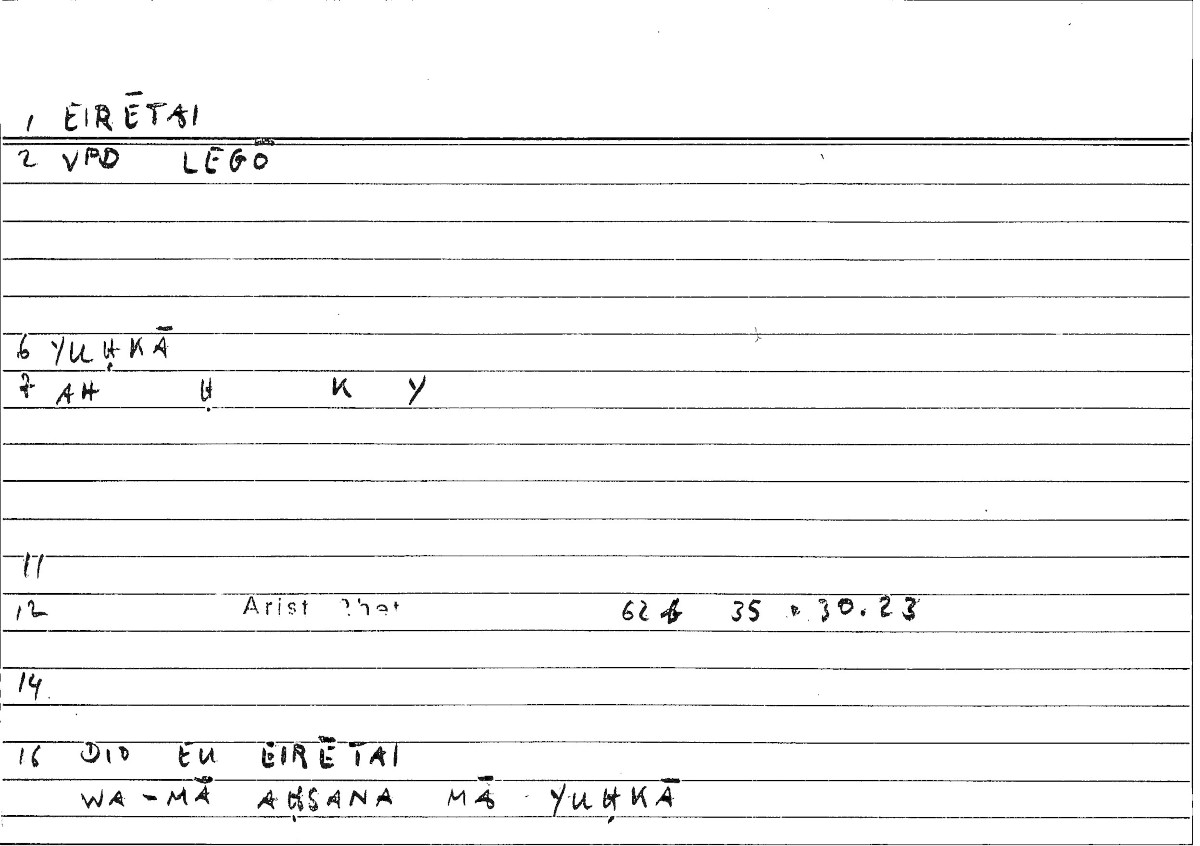 1 EIRĒTAI
2 VPD LEGŌ
6 YUḤKĀ
7 AH Ḥ K Y
11
12 Arist Rhet 62 35 30.23
14
16 DIO EU EIRĒTAI
WA-MĀ AḤSANA MĀ YUḤKĀ